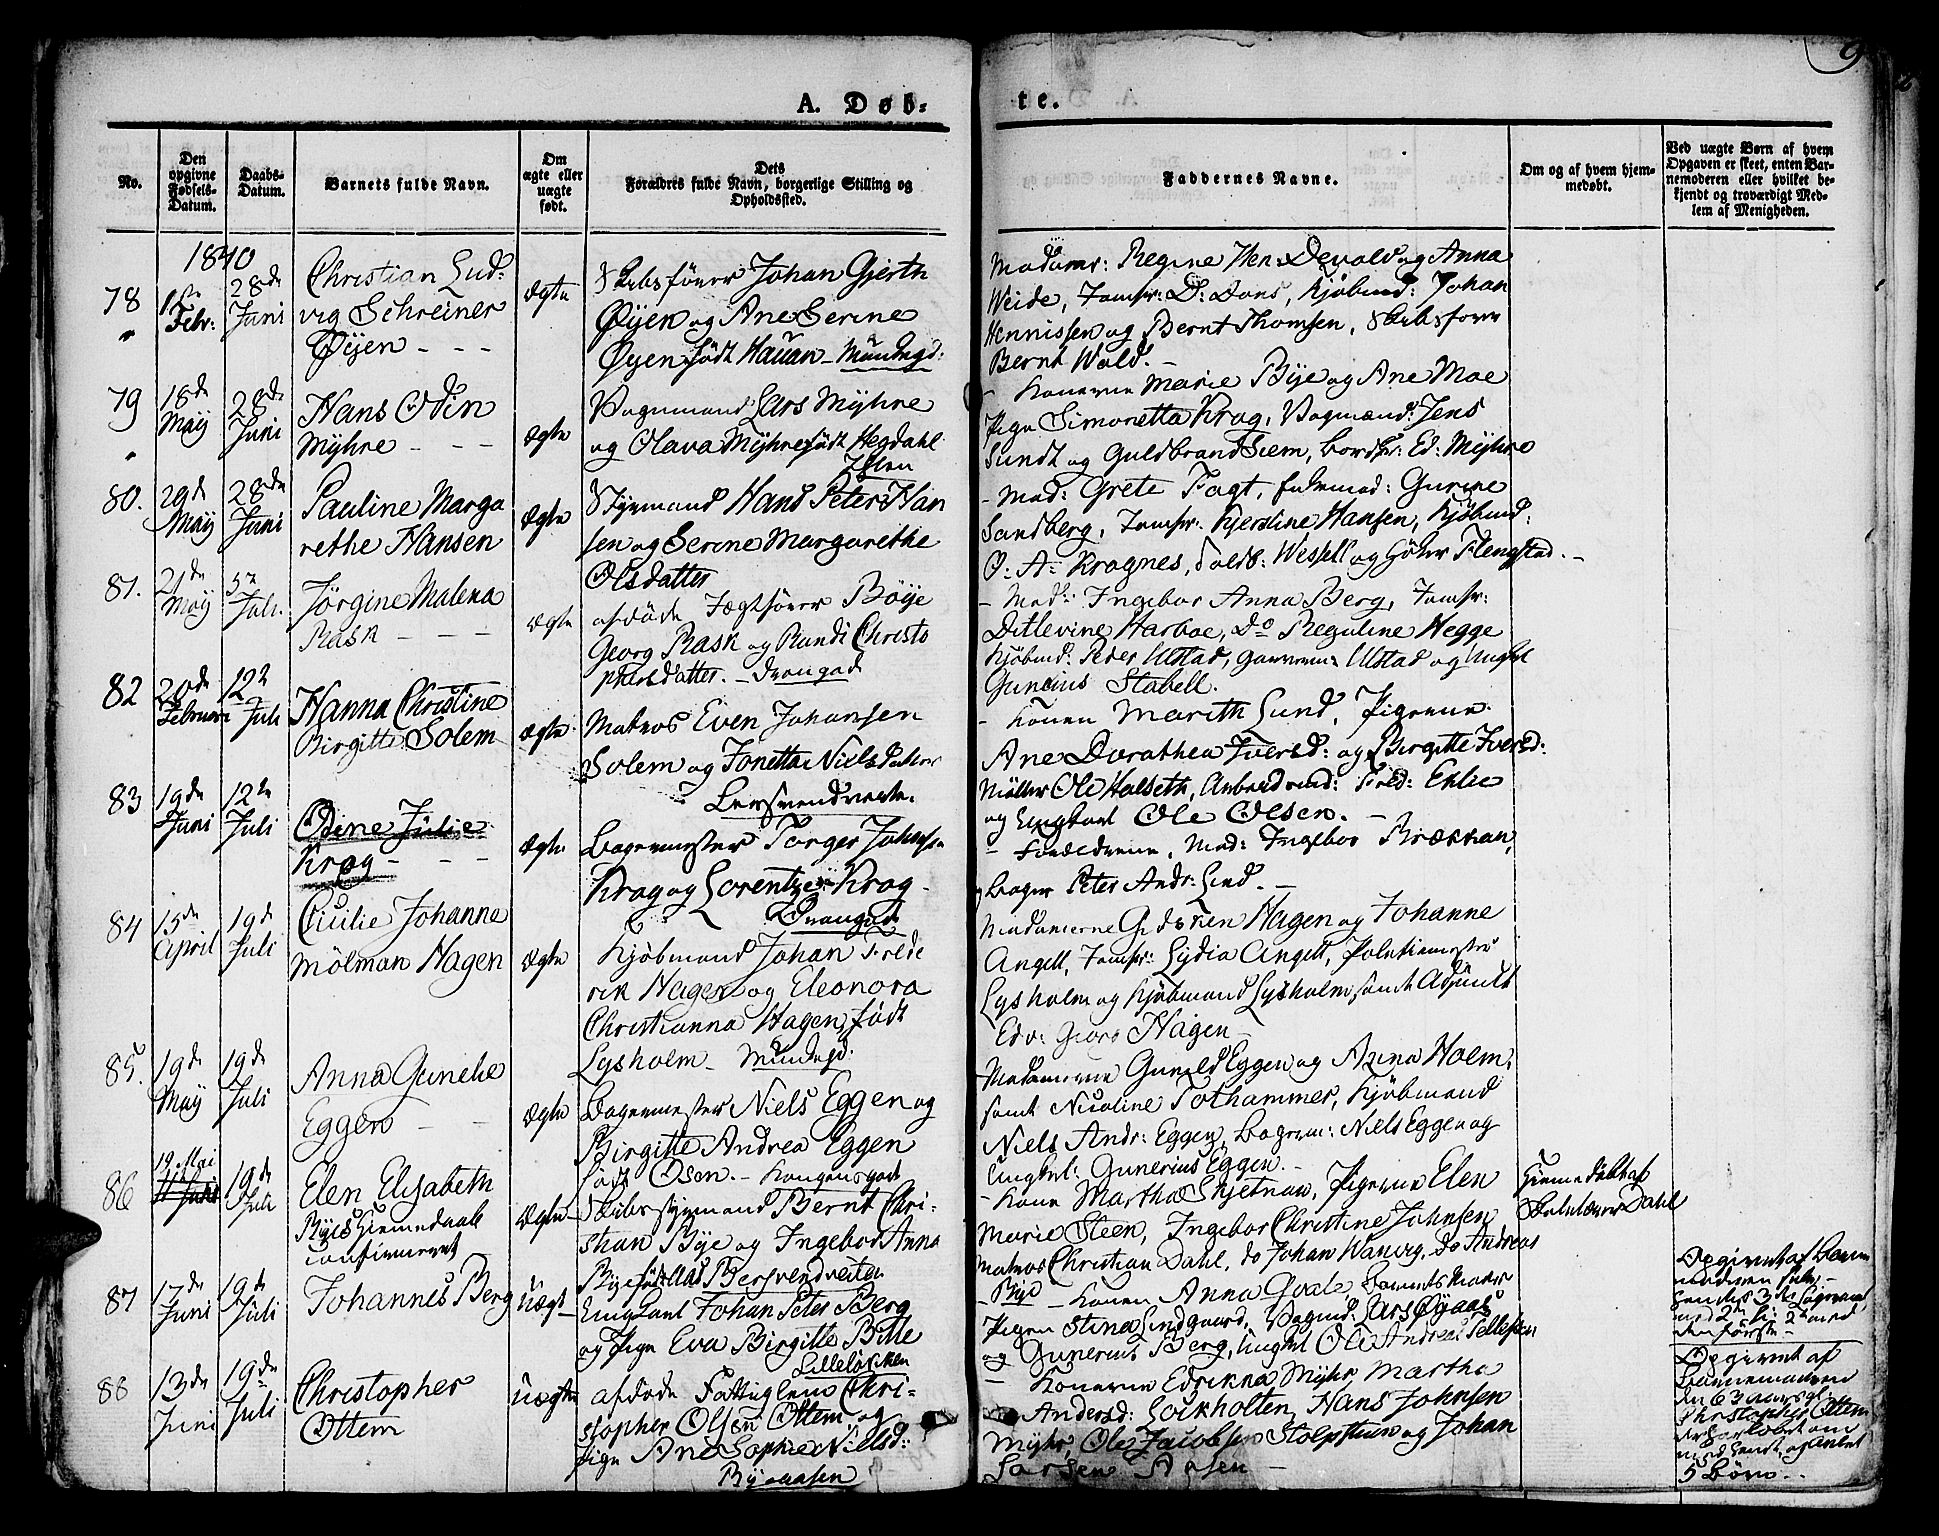 A. Døb-
te.
9
No.
Den opgivne Fødsels-Datum.
Daabs-Datum.
Barnets fulde Navn.
Om ægte eller uægte født.
Dets Forældres fulde Navn, borgerlige Stilling og Opholdssted.
Faddernes Navne.
Om og af hvem hjem-
medøbt.
Ved uægte Børn af hvem
Opgaven er skeet, enten Bar-
nemoderen eller hvilket be-
kjendt og troværdigt Med-
lem af Menigheden.
1840
78
Febr:
28de
Juni
Christian Lud:
vig Schreiner
Øyen
Ægte
Skibsfører Johan Gjerth
Øyen og Ane Serine
Øyen født Hauan
Madamr: Regine Devold og Anna
Weide, Jomfr: D: Dons, Kjøbmd: Johan
Hennissen og Bernt Thomsen, Skibsfører
Bernt Wold.
79
18de
Maÿ
28de
Juni
Hans Odin
Mÿhre
Ægte
Vognmand Lars Mÿhre
og Olava Mÿhre født Hegdahl
Ihlen
Konerne Marie Bÿe og Ane Moe
Pige Simonetta Krog, Vogmænd: Jens
Sundt og Guldbrand Siem, Ed: Mÿhre
80.
29de
Maÿ
28de
Juni
Pauline Marga
rethe Hansen
Ægte
Styrmand Hans Peter Han
sen og Serine Margarethe
Olsdatter
Mad: Grete Fagt, Gurine
Sandberg, Jomfr: Kjerstine Hansen, Kjøbmd:
O: A: Kragnes, Wessell og Flengstad.
81.
21de
Maÿ
5te
Juli.
Jørgine Malena
Rask
Ægte
afdøde Jægtfører Böÿe
Georg Rask og Randi Christo
phersdatter. Drongad
Mad: Ingebor Anna Berg, Jomfr:
Ditlevine Harboe, Do Reguline Hegge
Kjøbmd: Peder Ulstad, Ulstad og Ungkl
Gunerius Stabell.
82
20de
Februar
12te
Juli
Hanna Christine
Birgitte Solem
Ægte
Matros Even Johansen
Solem og Jonetta Nielsdatter
Konen Marith Lund, Pigerne
Ane Dorathea Iversd: og Birgitte Iversd:
Möller Ole Halseth, Arbeidsmd: Fred: Eklie
og Ungkarl Ole Olsen.
83
19de
Juni
12te
Juli
Odine Julie
Krog
Ægte
Bagermester Torger Johans
Krog og Lorentze Krog
Drongad
Forældrene, Mad: Ingebor Brækkan,
Bager Peter Andr: Lind.
84
15de
April
19de
Juli
Cicilie Johanne
Mölman Hagen
Ægte
Kjøbmand Johan Frede
rik Hagen og Eleonora
Christianna Hagen, født
Lysholm
Madamerne Gidsken Hagen og Johanne
Angell, Jomfr: Lÿdia Angell, Politiemester
Lysholm og Kjøbmand Lysholm samt Adjunct
Edv: Georg Hagen
85.
19de
Maÿ
19de
Juli
Anna Gunelie
Eggen
Ægte
Bagermester Niels Eggen og
Birgitte Andrea Eggen
født Osen. Kongensgad
Madamerne Gunild Eggen og Anna Holm,
samt Nicoline Tothammer, Kjöbmand
Niels Andr: Eggen, Bagerm: Niels Eggen og
Ungkl: Gunerius Eggen.
86
19 Mai
19de
Juli
Elen Elisabeth
Bÿe Hjemmedaab
confirmeret
Ægte
Skibsstyrmand Bernt Chri-
stian Bÿe og Ingebor Anna
Bÿe født Aas Bersvendveiten
Kone Martha Skjetnau, Pigerne Elen
Marie Steen, Ingebor Christine Johnsen
Matros Christian Dahl, do Johan Wanvig, do Andreas
Bÿe
Hjemmedøbt af
Skolelærer Dahl
87
17de
Juni
19de
Juli
Johannes Berg
Uægt
Ungkarl Johan Peter Berg
og Pige Eva Birgitte Bitte
Lilleløkken
Konen Anna Qvale, Barnets Moder
Pigen Stina Lindgaard, Vogmd: Lars Øyaas
og Gunerius Berg, Ungkl Ole Andreas Pellesen
Opgivet af Barne
moderen selv,
hendes 3de Leiermaal
med 2de
den første
88
13de
Juni
19de
Juli
Christopher
Ottem
Uægte
afdøde Fattiglem Chri-
stopher Olsen Ottem og
Pige Ane Sophie Nielsd:
Byaasen
Konerne Edrikna Mÿhr, Martha
Andersd: Lockholten, Hans Johnsen
Mÿhr, Ole Jacobsen Stolpsthuen og Johan
Larsen Aasen
Opgivet af
Barnemoderen
den 63 aarsgl
Christopher Ottem
er forlovet
med hende, og avlet
5 Børn.